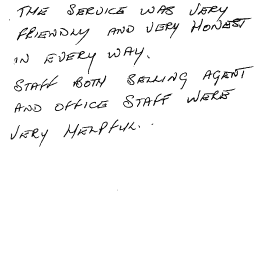 THE SERVICE WAS VERY
FRIENDLY AND VERY HONEST
IN EVERY WAY.
STAFF BOTH SELLING AGENT
AND OFFICE STAFF WERE
VERY HELPFUL.